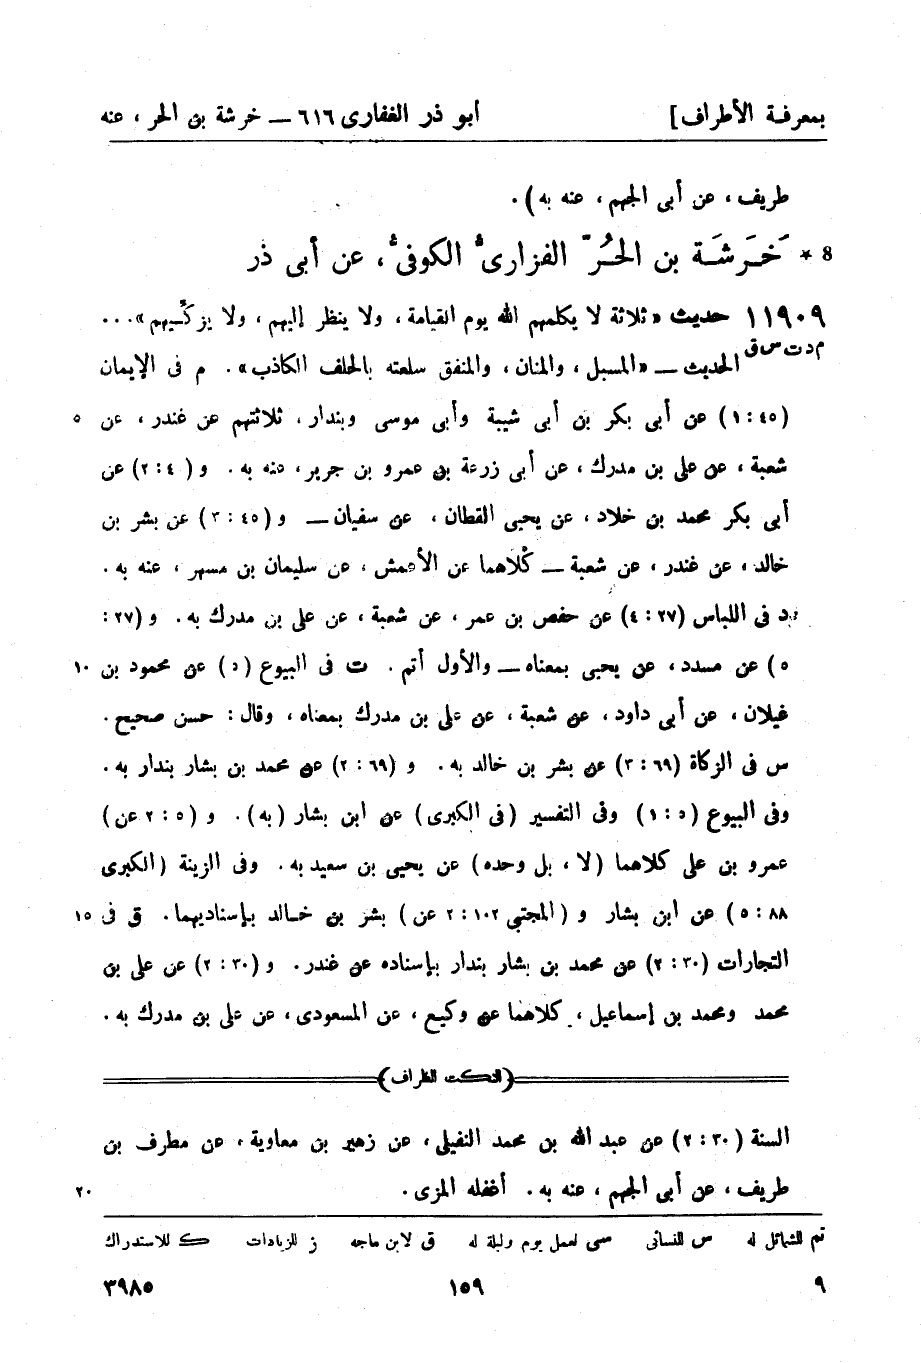 بمعرفة الأطراف] أبو ذر الغفارى ٦١٦ — خرشة بن الحر ، عنه
طريف ، عن أبى الجهم ، عنه به) .
8 * خَرَشَة بن الحُرّ الفزارىُّ الكوفىُّ ، عن أبى ذر
١١٩٠٩ حديث «ثلاثة لا يكلمهم الله يوم القيامة ، ولا ينظر إليهم ، ولا يزكّيهم» ...
م د ت س ق الحديث — «المسبل ، والمنان ، والمنفق سلعته بالحلف الكاذب» . م فى الإيمان
(٤٥ : ١) عن أبى بكر بن أبى شيبة وأبى موسى وبندار ، ثلاثتهم عن غندر ، عن ٥
شعبة ، عن على بن مدرك ، عن أبى زرعة بن عمرو بن جرير ، عنه به . و ( ٤ : ٢) عن
أبى بكر محمد بن خلاد ، عن يحيى القطان ، عن سفيان — و (٤٥ : ٣) عن بشر بن
خالد ، عن غندر ، عن شعبة — كلاهما عن الأعمش ، عن سليمان بن مسهر ، عنه به .
د فى اللباس (٢٧ : ٤) عن حفص بن عمر ، عن شعبة ، عن على بن مدرك به . و (٢٧ :
٥) عن مسدد ، عن يحيى بمعناه — والأول أتم . ت فى البيوع (٥) عن محمود بن ١٠
غيلان ، عن أبى داود ، عن شعبة ، عن على بن مدرك بمعناه ، وقال : حسن صحيح .
س فى الزكاة (٦٩ : ٣) عن بشر بن خالد به . و (٦٩ : ٢) عن محمد بن بشار بندار به .
وفى البيوع (٥ : ١) وفى التفسير (فى الكبرى) عن ابن بشار (به) . و (٥ : ٢ عن)
عمرو بن على كلاهما (لا ، بل وحده) عن يحيى بن سعيد به . وفى الزينة (الكبرى
٨٨ : ٥) عن ابن بشار و (المجتبى ١٠٢ : ٢ عن) بشر بن خالد بإسناديهما . ق فى ١٥
التجارات (٣٠ : ٢) عن محمد بن بشار بندار بإسناده عن غندر . و (٣٠ : ٢) عن على بن
محمد ومحمد بن إسماعيل ، كلاهما عن وكيع ، عن المسعودى ، عن على بن مدرك به .
(النكت الظراف)
السنة (٣٠ : ٢) عن عبد الله بن محمد النفيلى ، عن زهير بن معاوية ، عن مطرف بن
طريف ، عن أبى الجهم ، عنه به . أغفله المزى . ٢٠
تم للشمائل له س للنسائى سى لعمل يوم وليلة له ق لابن ماجه ز للزيادات ك للاستدراك
٩ ١٥٩ ٣٩٨٥